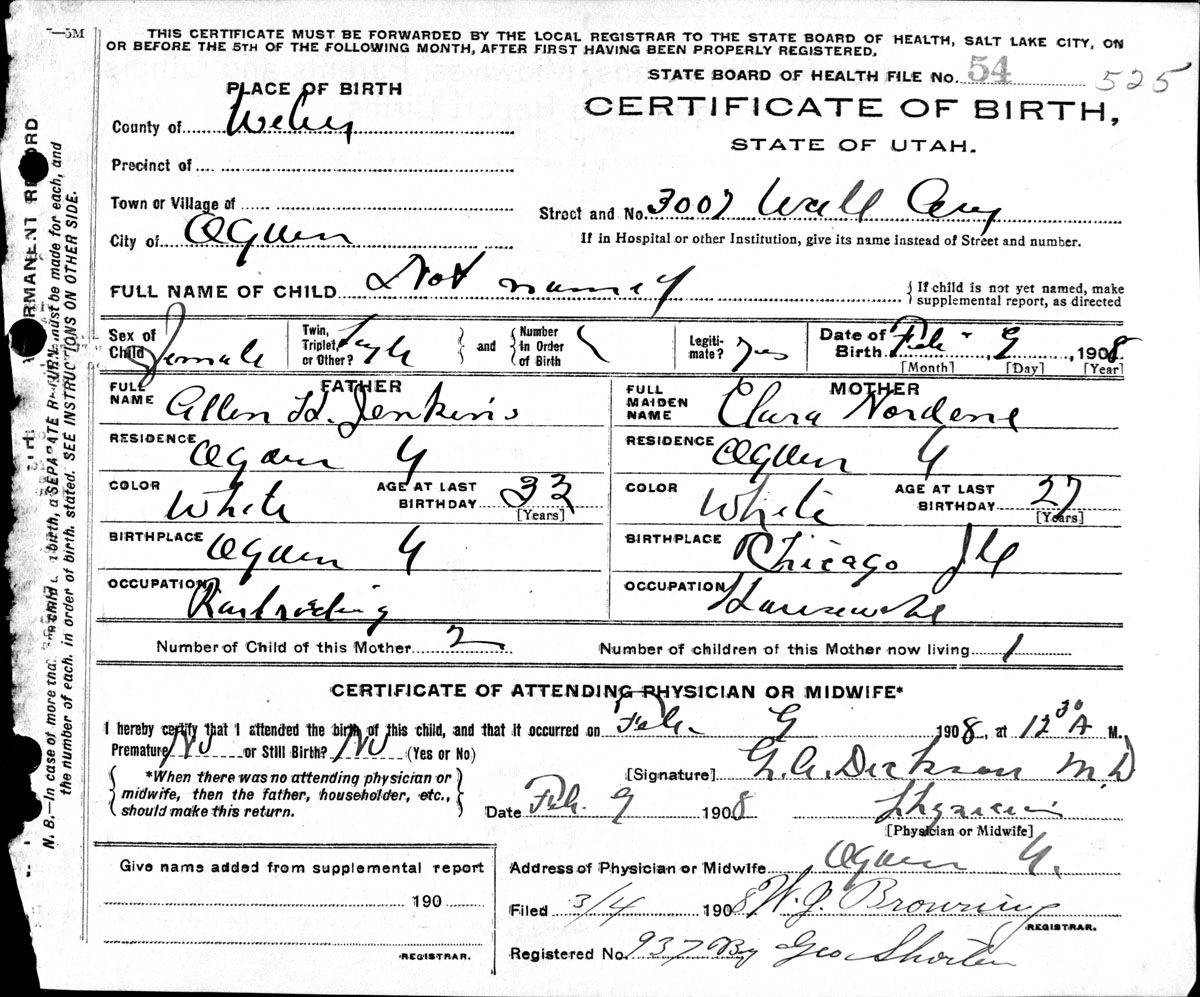 —5M
THIS CERTIFICATE MUST BE FORWARDED BY THE LOCAL REGISTRAR TO THE STATE BOARD OF HEALTH, SALT LAKE CITY, ON
OR BEFORE THE 5TH OF THE FOLLOWING MONTH, AFTER FIRST HAVING BEEN PROPERLY REGISTERED.
STATE BOARD OF HEALTH FILE No. 54 525
PLACE OF BIRTH
CERTIFICATE OF BIRTH,
STATE OF UTAH.
County of Weber
Precinct of
Town or Village of
Street and No. 3007 Wall Ave
City of Ogden
If in Hospital or other Institution, give its name instead of Street and number.
FULL NAME OF CHILD Not named
{ If child is not yet named, make
supplemental report, as directed
Sex of Child Female
Twin, Triplet, or Other? Single
and
Number in Order of Birth
Legitimate? Yes
Date of Birth Feb - 9, 1908
[Month] [Day] [Year]
FATHER
FULL NAME Allen H. Jenkins
RESIDENCE Ogden U
COLOR White
AGE AT LAST BIRTHDAY 33
[Years]
BIRTHPLACE Ogden U
OCCUPATION Railroading
MOTHER
FULL MAIDEN NAME Clara Nordene
RESIDENCE Ogden U
COLOR White
AGE AT LAST BIRTHDAY 27
[Years]
BIRTHPLACE Chicago Ill
OCCUPATION Housewife
Number of Child of this Mother 2
Number of children of this Mother now living 1
CERTIFICATE OF ATTENDING PHYSICIAN OR MIDWIFE*
I hereby certify that I attended the birth of this child, and that it occurred on Feb. 9 1908, at 12 30 A M.
Premature No or Still Birth? No (Yes or No)
{ *When there was no attending physician or
midwife, then the father, householder, etc.,
should make this return. }
[Signature] Dickson M.D
Date Feb. 9 1908 Physician
[Physician or Midwife]
Address of Physician or Midwife Ogden U.
Give name added from supplemental report
190
REGISTRAR.
Filed 3/4 1908 W. J. Browning
REGISTRAR.
Registered No. 937 By Geo Shorten
N. B.—In case of more than birth, a SEPARATE RETURN must be made for each, and
the number of each, in order of birth, stated. SEE INSTRUCTIONS ON OTHER SIDE.
RECORD